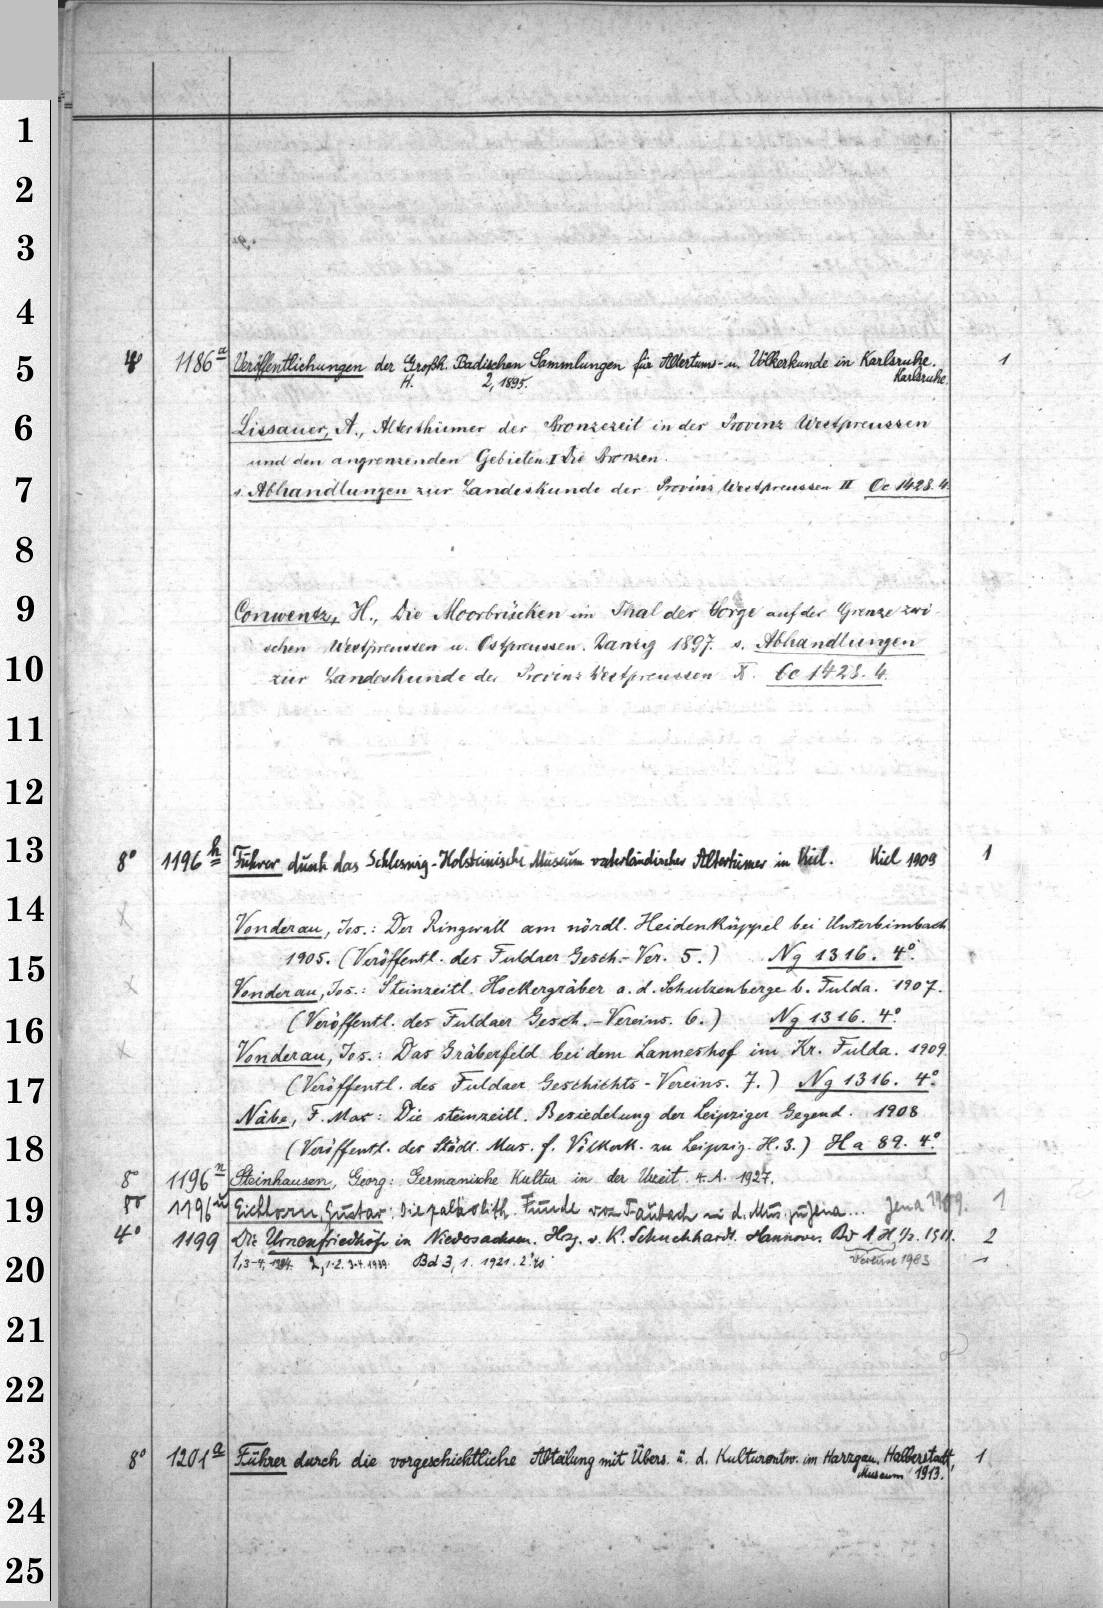 1
2
3
4
5 4° 1186a Veröffentlichungen der Großh. Badischen Sammlungen für Altertums- u. Völkerkunde in Karlsruhe. 1
H. 2, 1895. Karlsruhe.
6 Lissauer, A., Alterthümer der Bronzezeit in der Provinz Westpreussen
und den angrenzenden Gebieten. I Die Bronzen.
7 s. Abhandlungen zur Landeskunde der Provinz Westpreussen II Oc 1428. 4.
8
9 Conwentz, H., Die Moorbrücken im Thal der Sorge auf der Grenze zwi-
schen Westpreussen u. Ostpreussen. Danzig 1897. s. Abhandlungen
10 zur Landeskunde der Provinz Westpreussen X. Oc 1428. 4.
11
12
13 8° 1196h Führer durch das Schleswig-Holsteinische Museum vaterländischer Altertümer in Kiel. Kiel 1909 1
14 Vonderau, Jos.: Der Ringwall am nördl. Heidenküppel bei Unterbimbach
15 1905. (Veröffentl. des Fuldaer Gesch.-Ver. 5.) Ng 1316. 4°.
Vonderau, Jos.: Steinzeitl. Hockergräber a. d. Schulzenberge b. Fulda. 1907.
16 (Veröffentl. des Fuldaer Gesch.-Vereins. 6.) Ng 1316. 4°.
Vonderau, Jos.: Das Gräberfeld bei dem Lanneshof im Kr. Fulda. 1909.
17 (Veröffentl. des Fuldaer Geschichts-Vereins. 7.) Ng 1316. 4°.
Näbe, F. Max: Die steinzeitl. Besiedelung der Leipziger Gegend. 1908
18 (Veröffentl. des Städt. Mus. f. Völkerk. zu Leipzig. H. 3.) Ha 89. 4°.
8° 1196n Steinhausen, Georg: Germanische Kultur in der Urzeit. 4. A. 1927.
19 8° 1196u Eichhorn, Gustav: Die paläolith. Funde von Taubach in d. Mus. zu Jena... Jena 1909. 1
4° 1199 Die Urnenfriedhöfe in Niedersachsen. Hrsg. v. K. Schuchhardt. Hannover. Bd 1 H. 1/2. 1911. 2
20 1, 3-4, 2, 1-2. 3-4. 1939. Bd 3, 1. 1921. Verlust 1983 1
21
22
23 8° 1201a Führer durch die vorgeschichtliche Abteilung mit Übers. ü. d. Kulturentw. im Harzgau. Halberstadt, 1
Museum 1913.
24
25